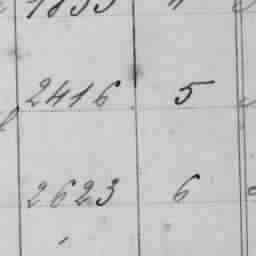 1833 "
2416 5
2623 6